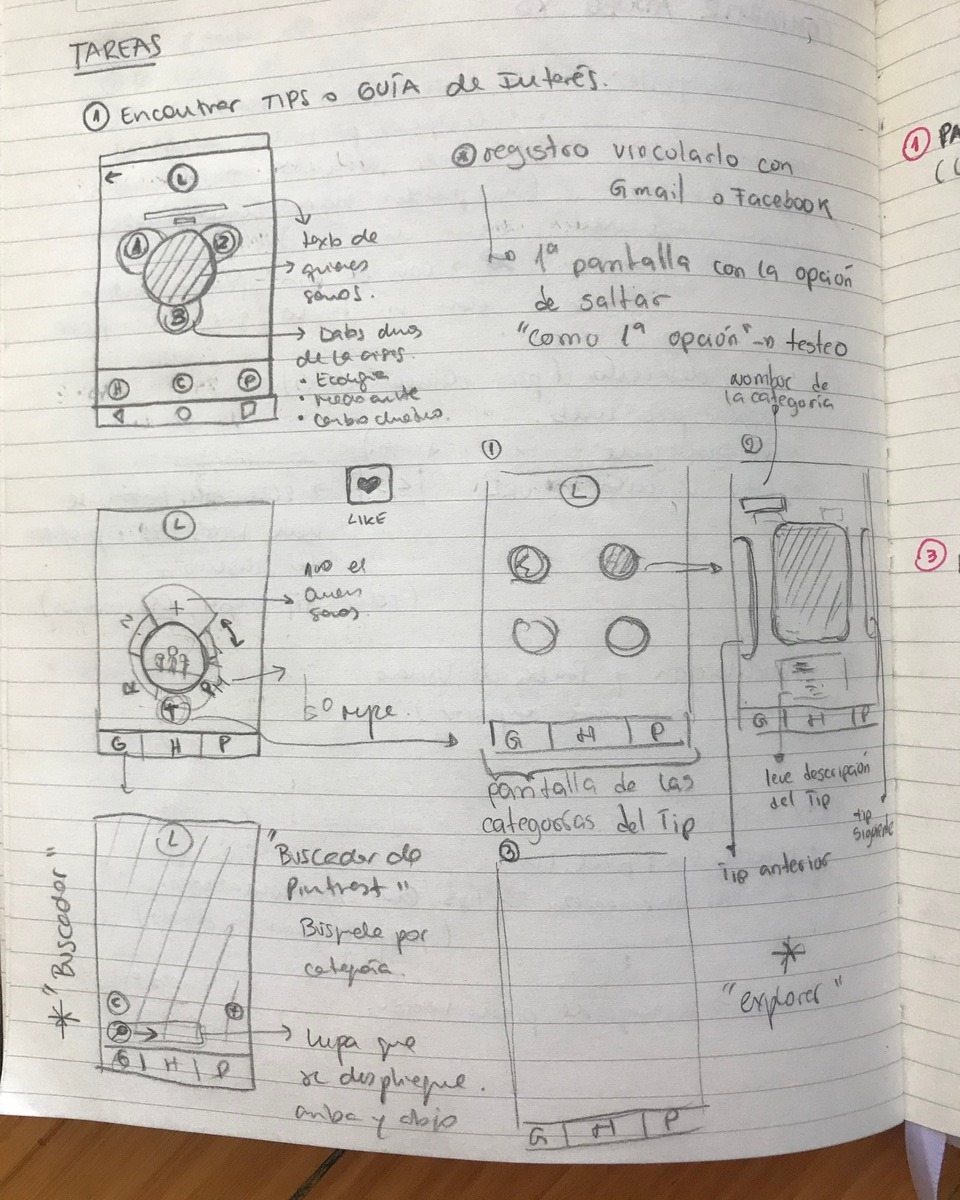 TAREAS
① Encontrar TIPS o GUÍA de Interés.
←
L
1
2
3
texto de
quienes
sómos.
Datos duros
de la
• Ecología
• medio ambiente
H C P
* registro vinculado con
Gmail o Facebook
1ª pantalla con la opción
de saltar
"como 1ª opción" testeo
LIKE
L
+
el
quien
somos
R
G H P
①
L
G H P
pantalla de las
categorías del Tip
nombre de
la categoría
②
G H P
leve descripción
del Tip
Tip anterior
tip
siguiente
* "Buscador"
L
C
+
G H P
"Buscador de
Pintrest"
Búsqueda por
categoría.
Lupa que
se despliegue.
arriba y abajo
③
G H P
*
"explorer"
① PA
③